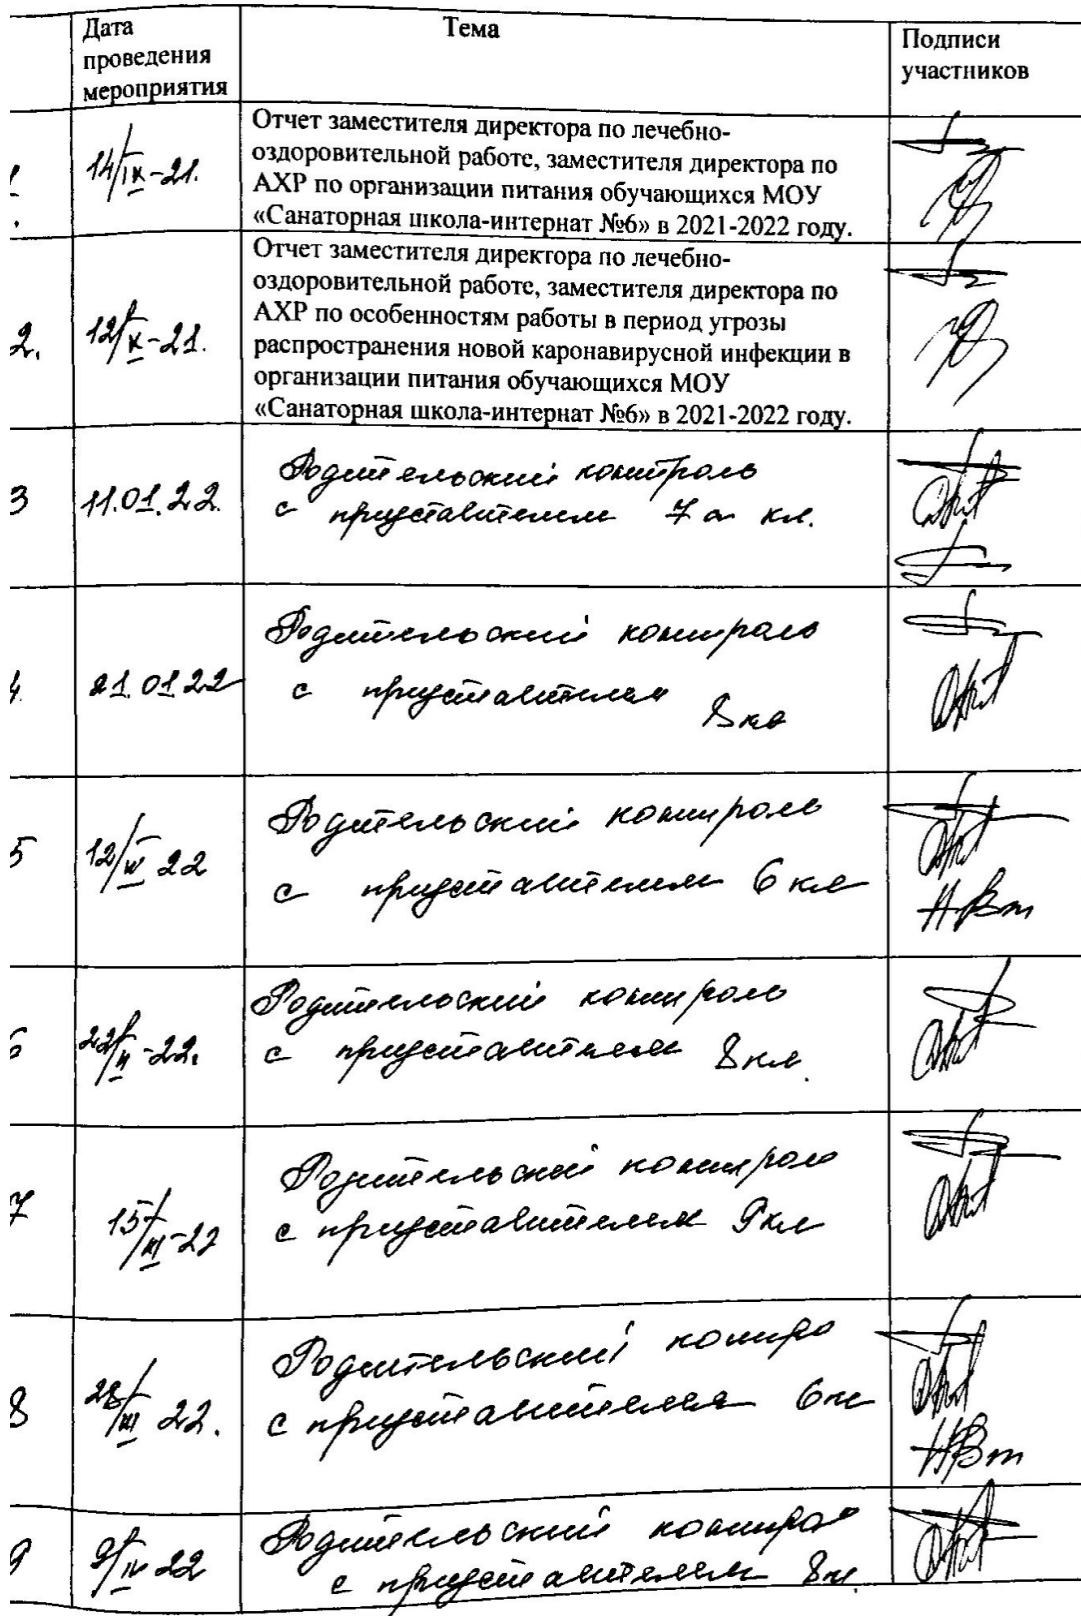 Дата
проведения
мероприятия
Тема
Подписи
участников
1.
14/IX-21.
Отчет заместителя директора по лечебно-
оздоровительной работе, заместителя директора по
АХР по организации питания обучающихся МОУ
«Санаторная школа-интернат №6» в 2021-2022 году.
2.
12/X-21.
Отчет заместителя директора по лечебно-
оздоровительной работе, заместителя директора по
АХР по особенностям работы в период угрозы
распространения новой каронавирусной инфекции в
организации питания обучающихся МОУ
«Санаторная школа-интернат №6» в 2021-2022 году.
3
11.01.22.
Родительский контроль
с представителем 7а кл.
4.
21.01.22
Родительский контроль
с представителем
8 кл
5
22
Родительский контроль
с представителем 6 кл
6
22/II-22.
Родительский контроль
с представителем 8 кл.
7
15/III-22
Родительский контроль
с представителем 9 кл
8
28/III 22.
Родительский контро
с представителем 6 кл
9
9/IV 22
Родительский контрол
с представителем 8 кл.